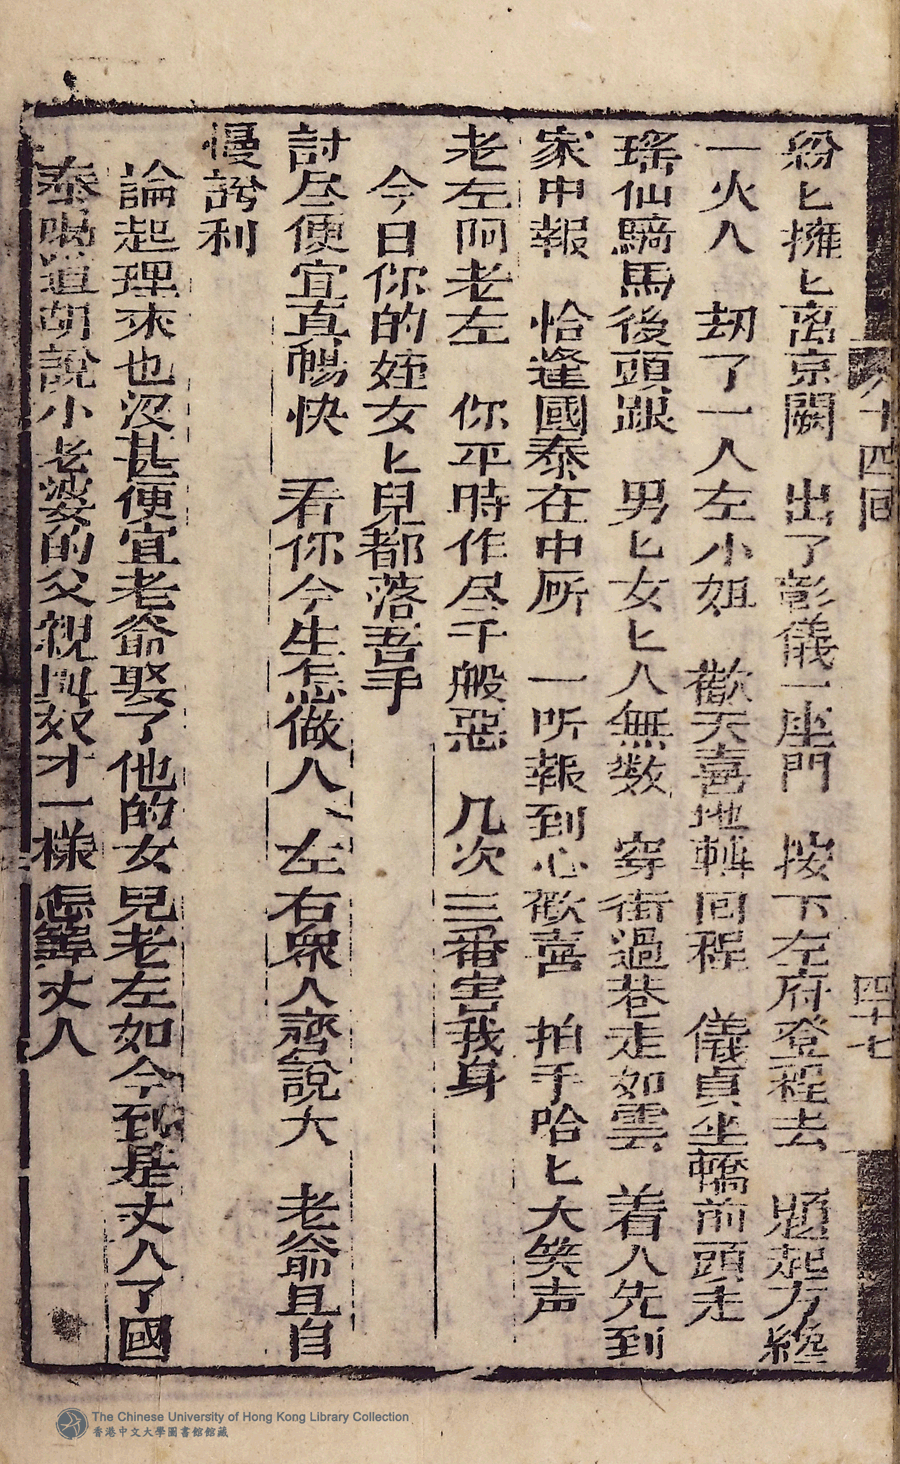 十四回
四十七
紛匕擁匕离京闕 出了彰儀一座門 按下左府登程去 題起方纔
一火人 刼了一人左小姐 歡天喜地轉回程 儀貞坐轎前頭走
瑤仙騎馬後頭跟 男匕女匕人無数 穿街過巷走如雲 着人先到
家中報 恰逢國泰在中所 一听報到心歡喜 拍手哈匕大笑声
老左阿老左 你平時作尽千般惡 几次三番害我身
今日你的姪女匕兒都落吾手
討尽便宜真暢快 看你今生怎做人 左右衆人齊說大 老爺且自
慢誇利
論起理來也沒甚便宜老爺娶了他的女兒老左如今到是丈人了國
泰喝道胡說小老婆的父親與奴才一樣怎算丈人
The Chinese University of Hong Kong Library Collection
香港中文大學圖書館館藏